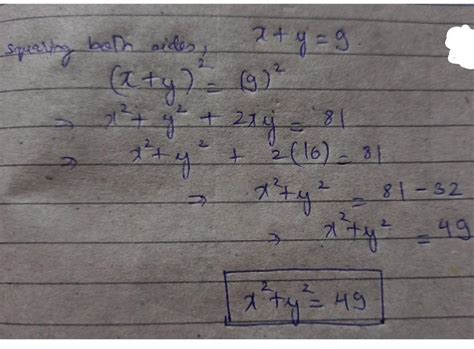 squaring both sides, x + y = 9.
(x + y)² = (9)²
→ x² + y² + 2xy = 81
⇒ x² + y² + 2(16) = 81
⇒ x² + y² = 81 - 32
⇒ x² + y² = 49
x² + y² = 49